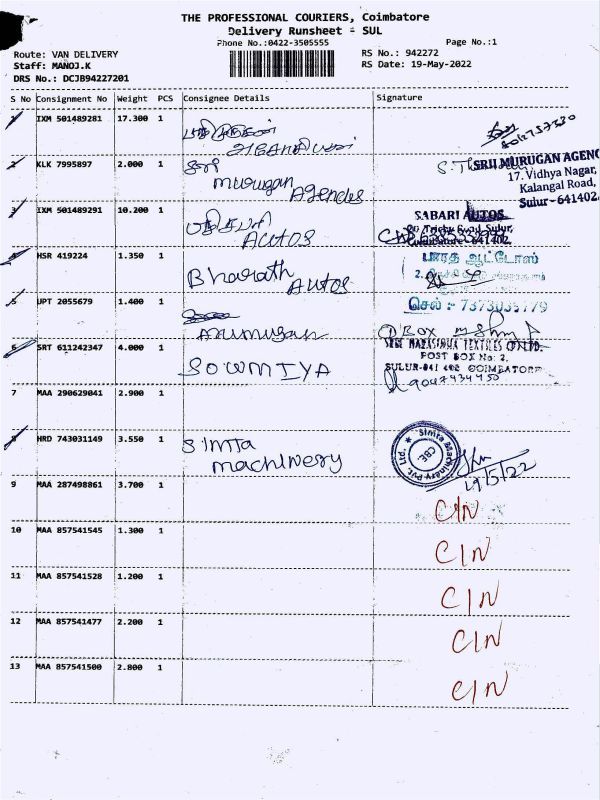 THE PROFESSIONAL COURIERS, Coimbatore
Delivery Runsheet - SUL
Phone No.:0422-3505555
Page No.:1
Route: VAN DELIVERY
RS No.: 942272
Staff: MANOJ.K
RS Date: 19-May-2022
DRS No.: DCJB94227201
S No Consignment No Weight PCS Consignee Details Signature
1 IXM 501489281 17.300 1
2 KLK 7995897 2.000 1 ஸ்ரீ murugan Agencies
SRII MURUGAN AGENC
17. Vidhya Nagar,
Kalangal Road,
Sulur - 641402.
3 IXM 501489291 10.200 1 AUTOS
SABARI AUTOS
Tricky Road, Sulur,
Coimbatore - 641402.
4 HSR 419224 1.350 1 Bharath Autos
பாரத் ஆட்டோஸ்
5 UPT 2055679 1.400 1 Arumugam
செல் :- 7373035779
6 SRT 611242347 4.000 1 SOWMIYA
SREE NARASIMHA TEXTILES
POST BOX No: 2,
SULUR-641 402 COIMBATORE
9047934450
7 MAA 290629041 2.900 1
8 HRD 743031149 3.550 1 Simta machinery
Simta Machinery Pvt. Ltd., CBE.
19/5/22
9 MAA 287498861 3.700 1 C/N
10 MAA 857541545 1.300 1 C/N
11 MAA 857541528 1.200 1 C/N
12 MAA 857541477 2.200 1 C/N
13 MAA 857541500 2.800 1 C/N